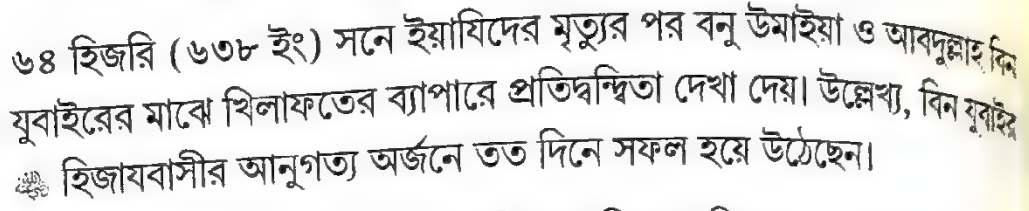 ৬৪ হিজরি (৬৩৮ ইং) সনে ইয়াযিদের মৃত্যুর পর বনু উমাইয়া ও আবদুল্লাহ বিন
যুবাইরের মাঝে খিলাফতের ব্যাপারে প্রতিদ্বন্দ্বিতা দেখা দেয়। উল্লেখ্য, বিন যুবাইর
হিজাযবাসীর আনুগত্য অর্জনে তত দিনে সফল হয়ে উঠেছেন।